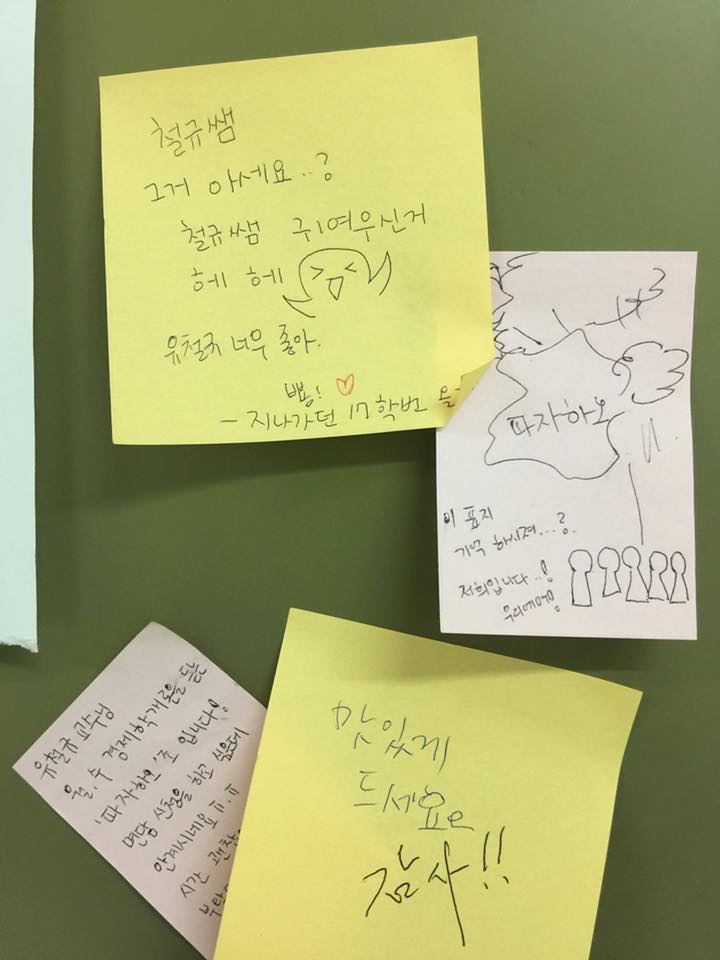 철규쌤
그거 아세요..?
철규쌤 귀여우신거
헤 헤
유철규 너무 좋아.
뿅!
- 지나가던 17학번 올
파자하오
이 표지
기억 하시져...?
저희입니다..!
우리에여!
유철규 교수님
월, 수 경제학개론을 듣는
'파자하오' 조 입니다!
면담 신청을 하고 싶은데
안계시네요 ㅠ.ㅠ
시간
맛있게
드세요
감사!!